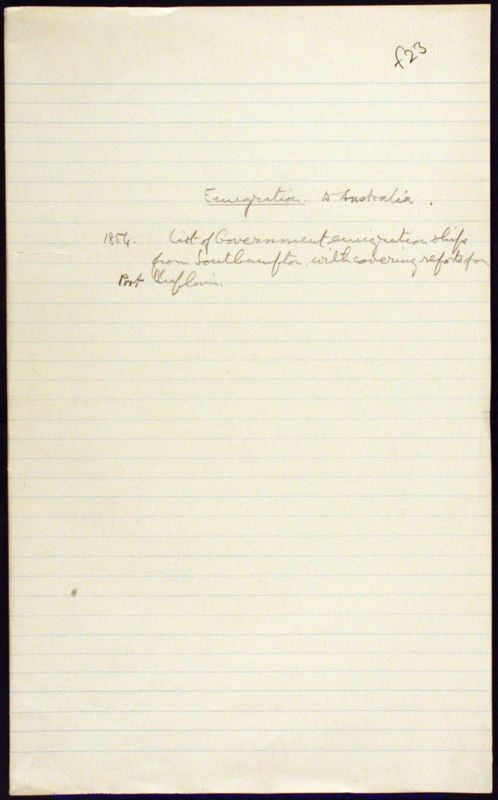 f23
Emigration to Australia.
1854. List of Government emigration ships
from Southampton, with covering report from
Port Chaplain.